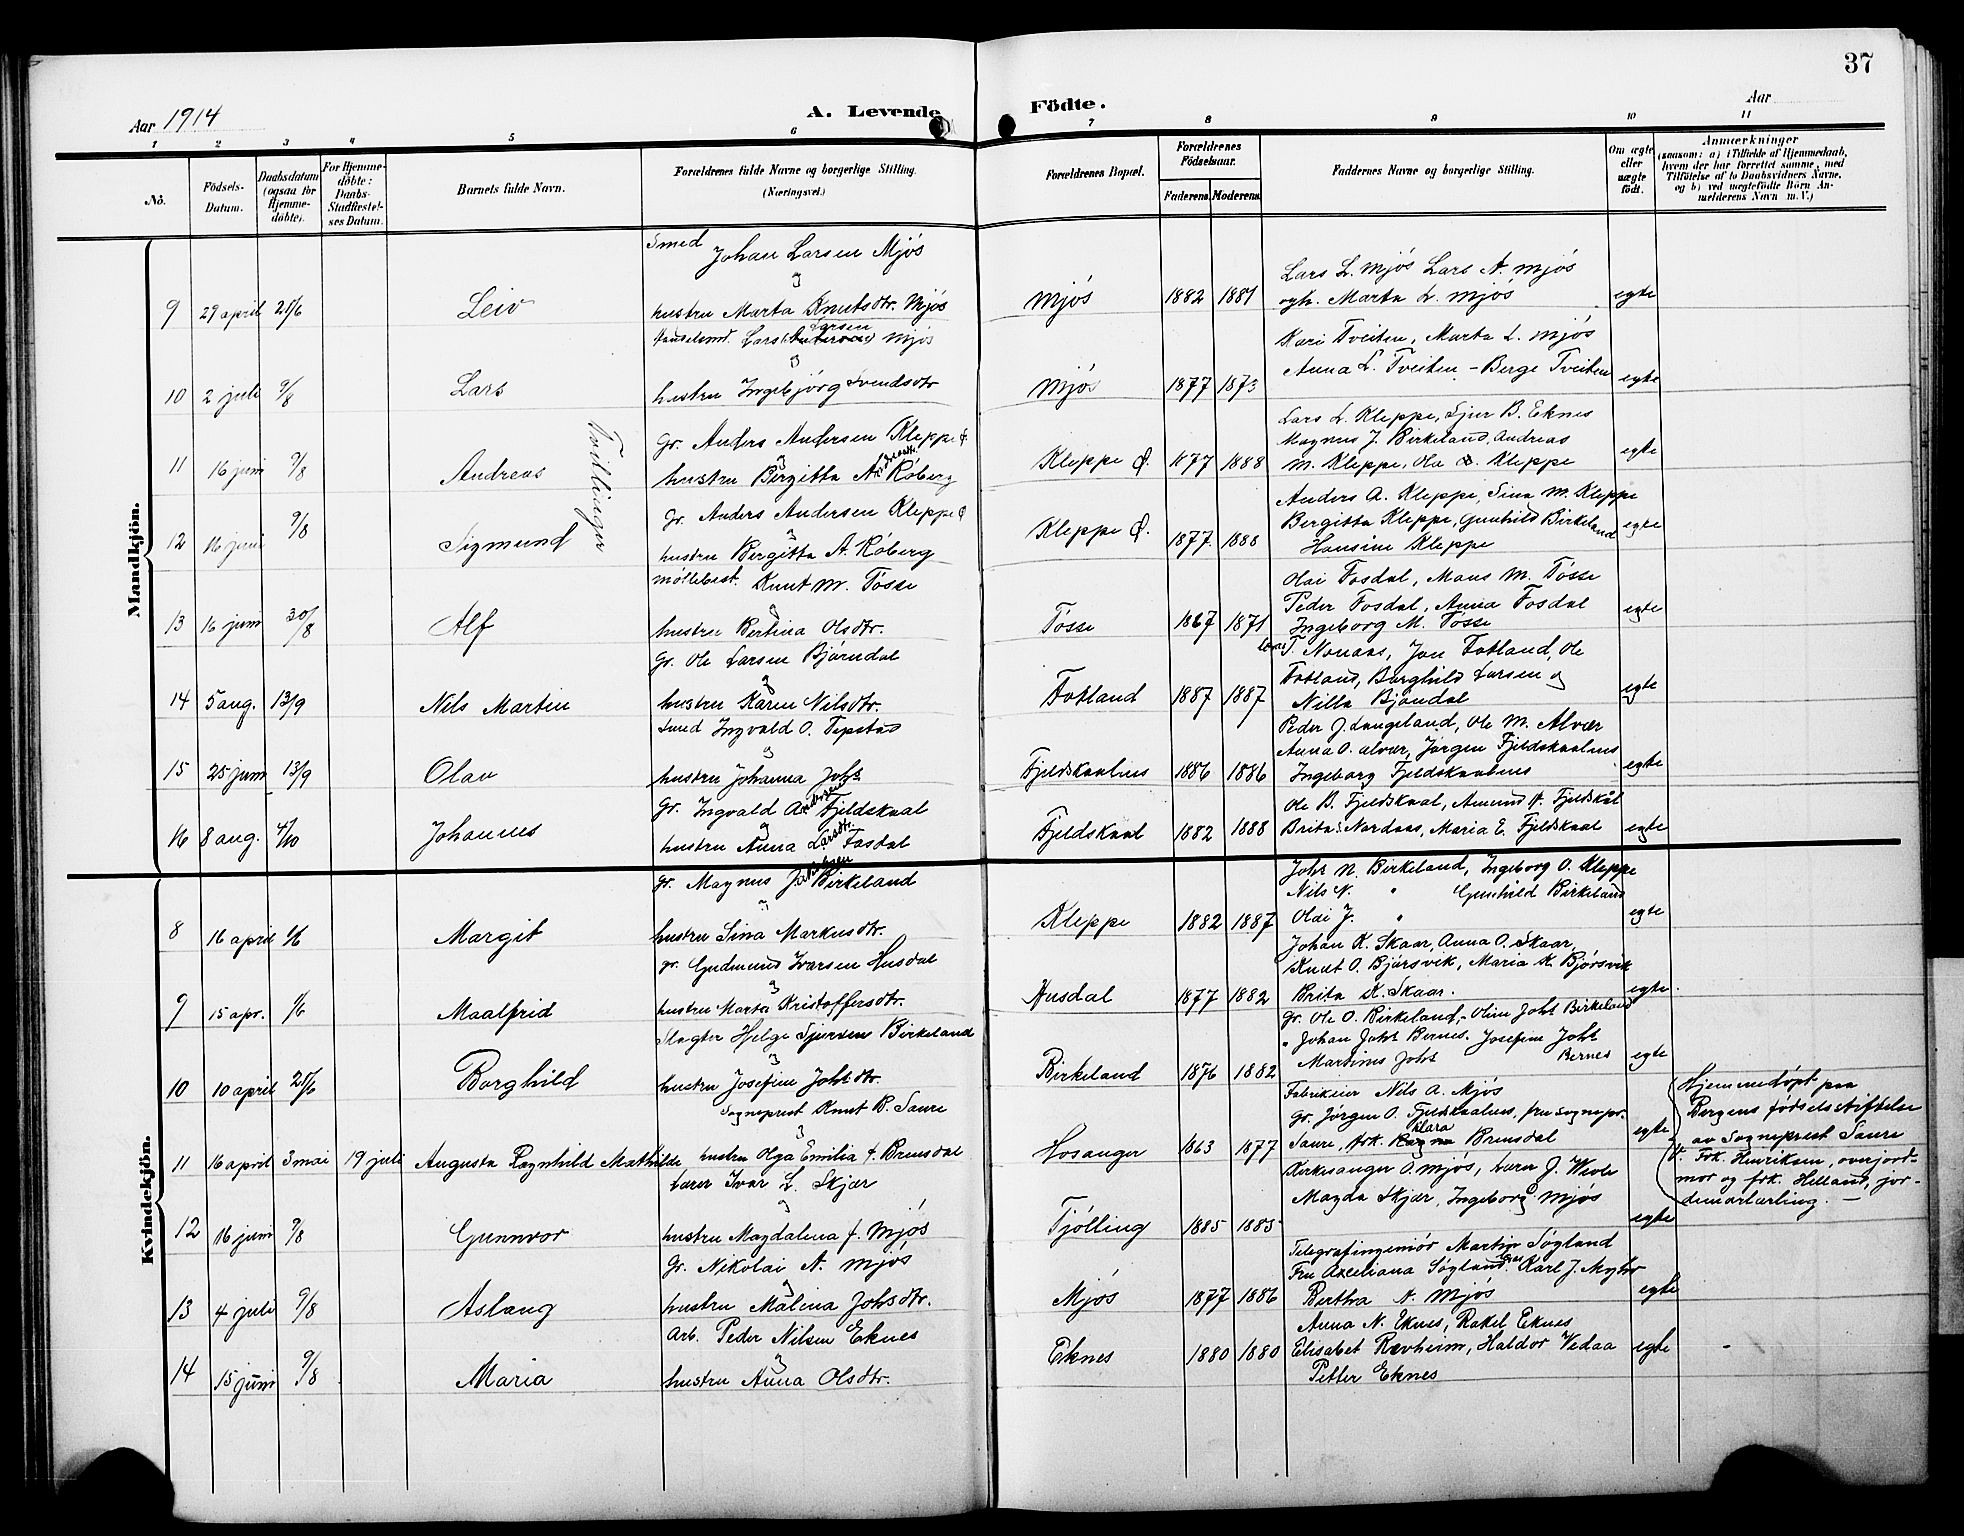 37
Aar 1914
A. Levende Födte.
Aar
1 2 3 4 5 6 7 8 9 10 11
No.
Födsels-Datum.
Daabsdatum (ogsaa for Hjemme-döbte).
For Hjemme-döbte: Daabs-Stadfæstel-ses Datum.
Barnets fulde Navn.
Forældrenes fulde Navne og borgerlige Stilling. (Næringsvei.)
Forældrenes Bopæl.
Forældrenes Födselsaar.
Faderens. Moderens.
Faddernes Navne og borgerlige Stilling.
Om ægte eller uægte födt.
Anmærkninger
(saasom: a) i Tilfælde af Hjemmedaab,
hvem der har forrettet samme, med
Tilföielse af to Daabsvidners Navne,
og b) ved uægtefödte Börn An-
melderens Navn m. V.)
Mandkjön.
Smed Johan Larsen Mjøs
og
9 29 april 21/6 Leiv hustru Marta Knutsdtr. Mjøs Mjøs 1882 1881 egte
Lars L. Mjøs Lars A. Mjøs
ogh. Marta L. Mjøs
Lars Larsen Mjøs
og
10 2 juli 9/8 Lars hustru Ingebjørg Svendsdtr Mjøs 1877 1873 egte
Kari Tveiten, Marta L. Mjøs
Anna L. Tveiten - Berge Tveiten
Tvillinger
Gr. Anders Andersen Kleppe Ø
og
11 16 juni 9/8 Andreas hustru Bergitta Røberg Kleppe Ø. 1877 1888 egte
Lars L. Kleppe, Sjur B. Eknes
Magnus J. Birkeland, Andreas
M. Kleppe, Ola Kleppe
Gr. Anders Andersen Kleppe Ø
og
12 16 juni 9/8 Sigmund hustru Bergitta A. Røberg Kleppe Ø. 1877 1888 egte
Anders A. Kleppe, Sina M. Kleppe
Bergitta Kleppe, Gunhild Birkeland
Hansine Kleppe
møllebest. Knut M. Tøsse
og
13 16 juni 30/8 Alf hustru Bertina Olsdtr. Tøsse 1867 1871 egte
Olai Fosdal, Mons M. Tøsse
Peder Fosdal, Anna Fosdal
Ingeborg M. Tøsse
Gr. Ole Larsen Bjørndal
og
14 5 aug. 13/9 Nils Martin hustru Karen Nilsdtr. Fotland 1887 1887 egte
T. Nonaas, Jon Fotland, Ole
Fotland, Borghild Larsen og
Nilla Bjøndal
Smed Ingvald O. Tepstad
og
15 25 juni 13/9 Olav hustru Johanna Johs Fjeldskaalnes 1886 1886 egte
Peder J. Langeland, Ole M. Alvær
Anna O. Alvær, Jørgen Fjeldskaalnes
Ingeborg Fjeldskaalnes
Gr. Ingvald Andersen Fjeldskaal
og
16 8 aug. 4/10 Johannes hustru Anna Larsdtr. Fosdal Fjeldskaal 1882 1888 egte
Ole B. Fjeldskaal, Amund A. Fjeldskål
Brita Nordaas, Maria E. Fjeldskaal
Kvindekjön.
gr. Magnus Jakobsen Birkeland
og
8 16 april 1/6 Margit hustru Sina Markusdtr. Kleppe 1882 1887 egte
Johs N. Birkeland, Ingeborg O. Kleppe
Nils N. " Gunhild Birkeland
Olai J. "
gr. Gudmund Ivarsen Husdal
og
9 15 apr. 1/6 Maalfrid hustru Marta Kristoffersdtr. Husdal 1877 1882 egte.
Johan K. Skaar, Anna O. Skaar,
Knut O. Bjørsvik, Maria K. Bjørsvik
Brita K. Skaar.
Slagter Helge Sjursen Birkeland
og
10 10 april 21/6 Borghild hustru Josefine Johsdtr. Birkeland 1876 1882 egte
Gr. Ole O. Birkeland, Oline Johs Birkeland
" Johan Johs Bernes. Josefine Johs
Martines Johs Bernes
Sogneprest Knut B. Saure
og
11 16 april 3 mai 19 juli Augusta Ragnhild Mathilde hustru Olga Emilia f. Brunsdal Hosanger 1863 1877 egte
Fabrikeier Nils A. Mjøs
Gr. Jørgen O. Fjeldskaalnes, fru sognepr.
Saure, frk. Klara Brunsdal
Hjemmedøpt paa
Bergens fødselsstiftelse
av Sogneprest Saure
V. Frk. Henriksen, overjord-
mor og frk. Helland, jor-
demorlærling. —
Lærer Ivar L. Skjær
og
12 16 juni 9/8 Gunnvor hustru Magdalena f. Mjøs Tjølling 1885 1885 egte
Kirkesanger O. Mjøs, Lærer J. Wevle
Magda Skjær, Ingeborg O Mjøs
Gr. Nikolai A. Mjøs
og
13 4 juli 9/8 Aslaug hustru Malina Johsdtr. Mjøs 1877 1886 egte
Telegrafingeniør Martin Søgland
Fru Axeliana Søgland. Karl J. Myhr
Bertha A. Mjøs
Arb. Peder Nilsen Eknes
og
14 15 juni 9/8 Maria hustru Anna Olsdtr. Eknes 1880 1880 egte -
Anna N. Eknes, Rakel Eknes
Elisabet Revheim, Haldor Vedaa
Petter Eknes